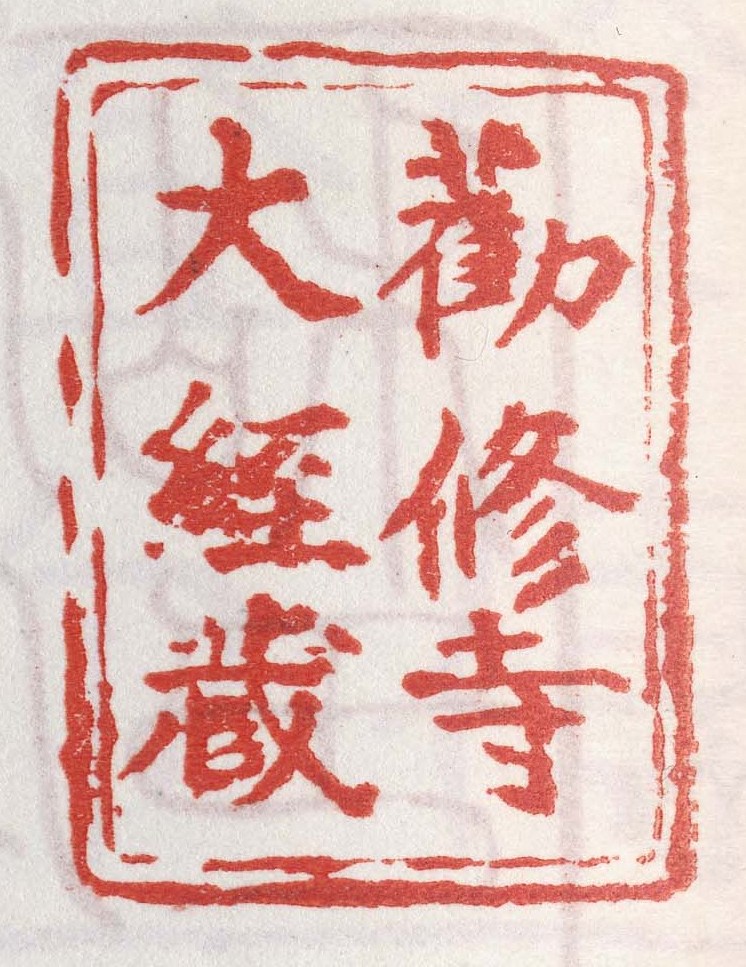 勸修寺
大經藏